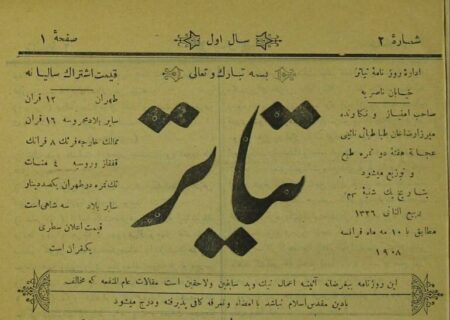 شمارۀ ۲
سال اول
صفحۀ ۱
ادارۀ روزنامۀ تیاتر
خیابان ناصریه
صاحب امتیاز و نگارنده
میرزا رضاخان طباطبائی نائینی
عجالة هفتۀ دو نمره طبع
و توزیع میشود
بتاریخ یک شنبۀ نهم
ربیع الثانی ۱۳۲۶
مطابق با ۱۰ مه ماه فرانسه
۱۹۰۸
بسمه تبارك وتعالی
تیاتر
قیمت اشتراك سالیانه
طهران ۱۲ قران
سایر بلاد محروسه ۱۶ قران
ممالك خارجه فرنك ۸ فرانك
قفقاز وروسیه ٤ منات
تك نمره در طهران یکصد دینار
سایر بلاد سه شاهی است
قیمت اعلان سطری
یکقران است
این روزنامه بیغرضانه آئینه اعمال نیك وبد سابقین ولاحقین است مقالات عام المنفعه که مخالف
بادین مقدس اسلام نباشد با امضاء وتعرفه کافی پذیرفته ودرج میشود